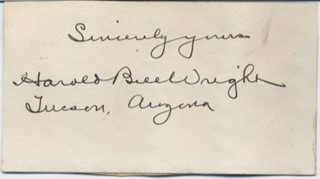 Sincerely yours
Harold Bell Wright
Tucson, Arizona